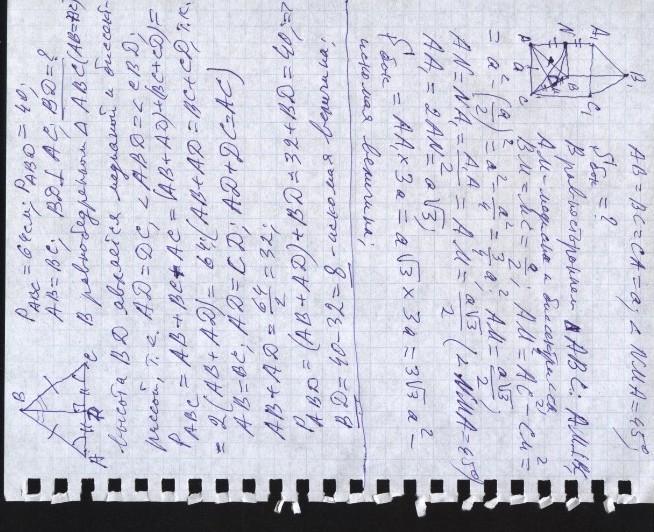 P_ABC = 64 см; P_ABD = 40;
AB = BC; BD ⊥ AC; BD = ?
В равнобедренном Δ ABC (AB = BC)
высота BD является медианой и биссект-
рисой, т.е. AD = DC, ∠ABD = ∠CBD;
P_ABC = AB + BC + AC = (AB + AD) + (BC + CD) =
= 2(AB + AD) = 64; (AB + AD = BC + CD, т.к.
AB = BC, AD = CD; AD + DC = AC)
AB + AD = 64/2 = 32;
P_ABD = (AB + AD) + BD = 32 + BD = 40, =>
BD = 40 - 32 = 8 - искомая величина.
B
A
D
C
AB = BC = CA = a; ∠NMA = 45°
S бок = ?
В равностороннем Δ ABC: AM ⊥ BC,
AM - медиана и биссектриса
BM = MC = a/2; AM² = AC² - CM² =
= a² - (a/2)² = a² - a²/4 = 3/4 a²; AM = a√3/2;
AN = NA₁ = A₁A/2 = AM = a√3/2 (∠NMA = 45°)
AA₁ = 2AN = a√3;
S бок = AA₁ × 3a = a√3 × 3a = 3√3 a² -
искомая величина;
A₁
B₁
C₁
N
A
B
C
a